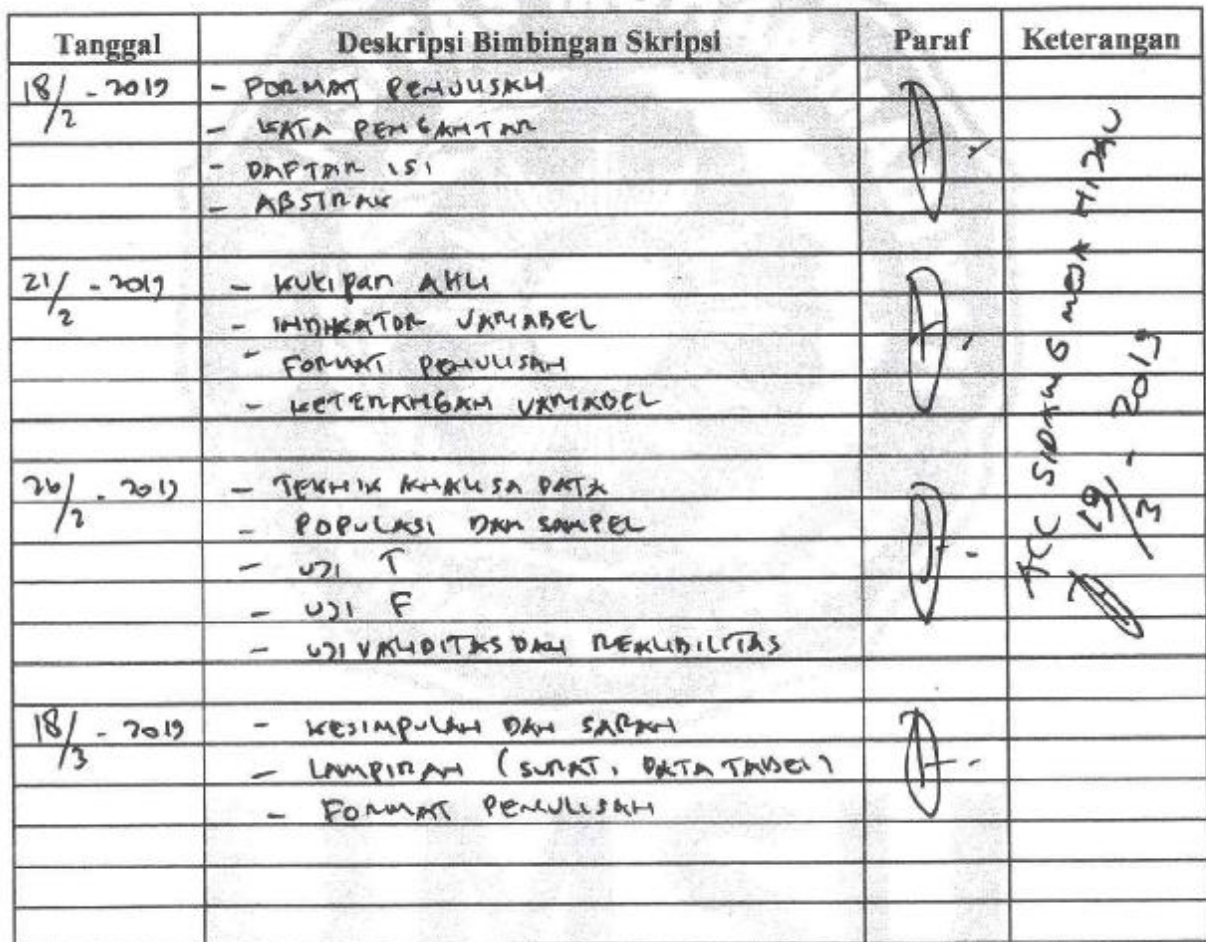 Tanggal Deskripsi Bimbingan Skripsi Paraf Keterangan
18/2 - 2019 - FORMAT PENULISAN
- KATA PENGANTAR
- DAFTAR ISI
- ABSTRAK
21/2 - 2019 - Kutipan AHLI
- INDIKATOR VARIABEL
- FORMAT PENULISAN
- KETERANGAN VARIABEL
26/2 - 2019 - TEKNIK ANALISA DATA
- POPULASI DAN SAMPEL
- UJI T
- UJI F
- UJI VALIDITAS DAN REALIBILITAS
18/3 - 2019 - KESIMPULAN DAN SARAN
- LAMPIRAN (SURAT, DATA TABEL)
- FORMAT PENULISAN
ACC SIDANG MEJA HIJAU
19/3 - 2019